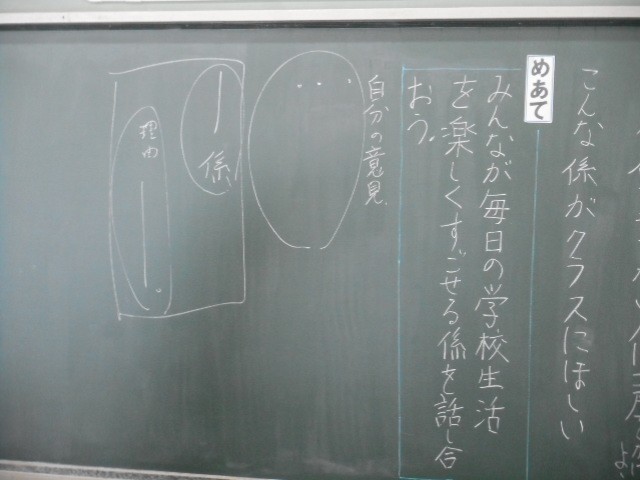 こんな係がクラスにほしい
めあて
みんなが毎日の学校生活
を楽しくすごせる係を話し合
おう。
自分の意見
係
理由